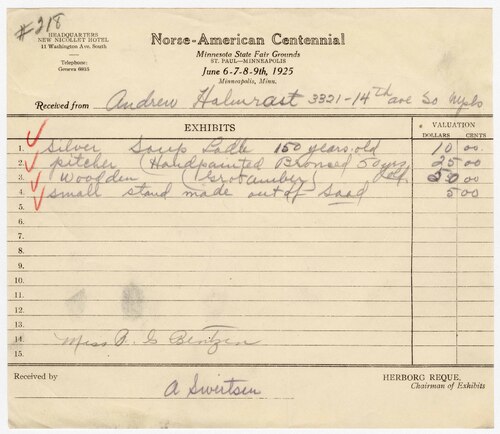 #218
HEADQUARTERS
NEW NICOLLET HOTEL
11 Washington Ave. South
Telephone:
Geneva 6835
Norse-American Centennial
Minnesota State Fair Grounds
ST. PAUL—MINNEAPOLIS
June 6-7-8-9th, 1925
Minneapolis, Minn.
Received from Andrew Holmrast 3321-14th ave So Mpls
EXHIBITS VALUATION
DOLLARS CENTS
1. Silver Soup Ladle 150 years old 10 00
2. pitcher (Handpainted Bronsed 50 yrs 25 00
3. Woodden ) old. 50 00
4. Small stand made out of 5 00
5.
6.
7.
8.
9.
10.
11.
12.
13.
14. Miss A. G Bentzen
15.
Received by A Sivertsen
HERBORG REQUE.
Chairman of Exhibits